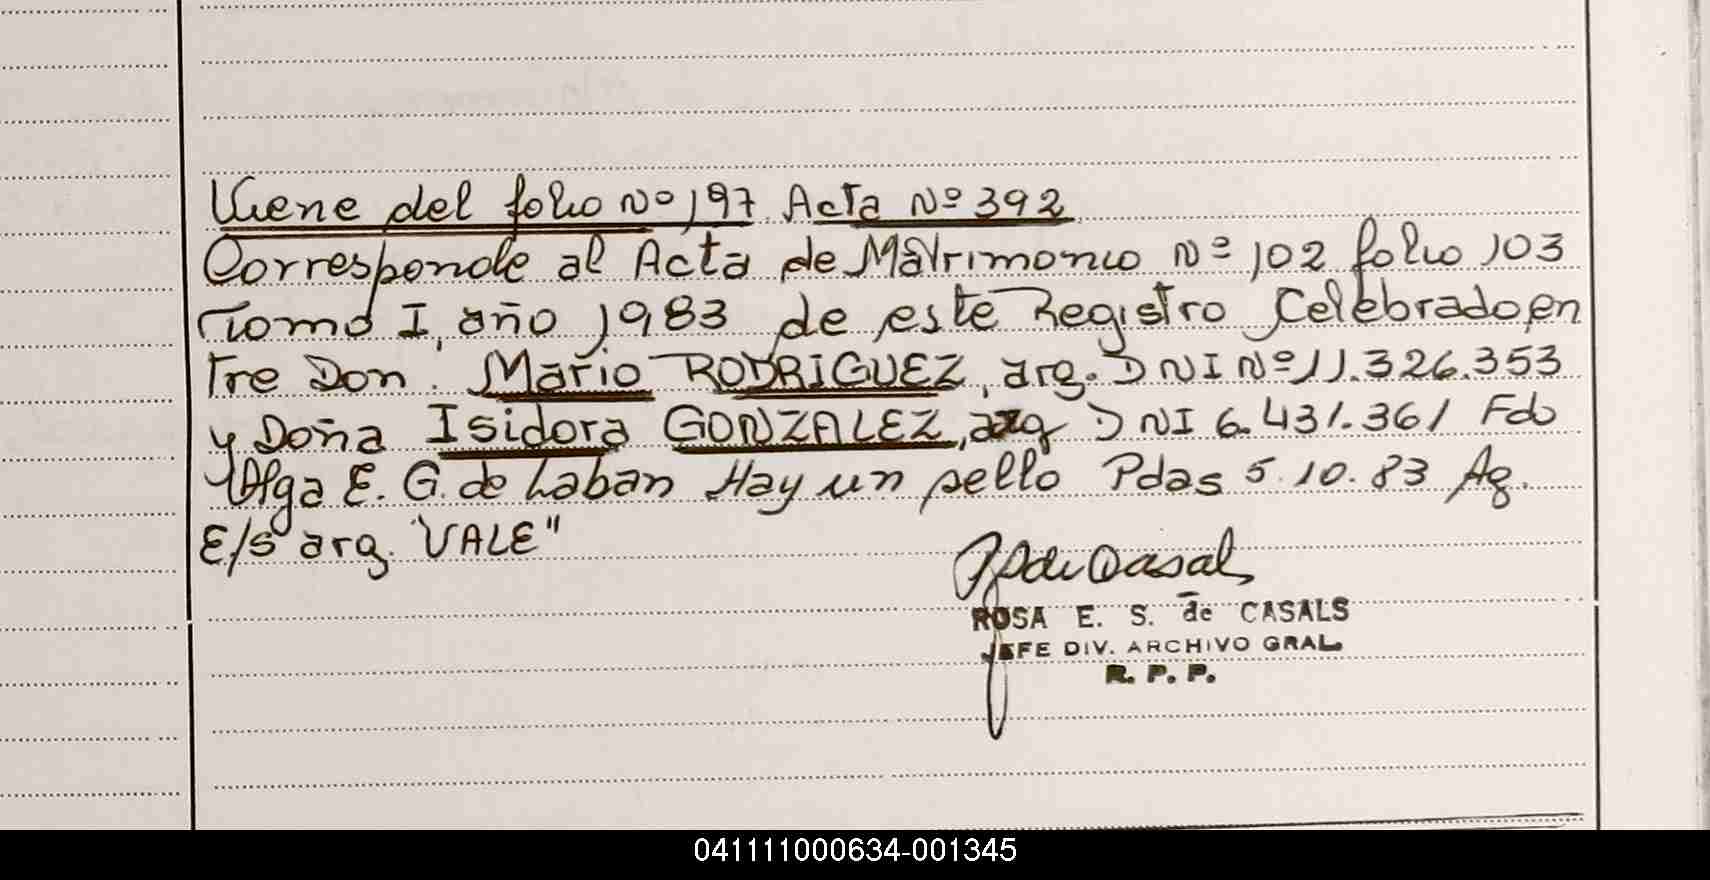 Viene del folio Nº 197 Acta Nº 392
Corresponde al Acta de Matrimonio Nº 102 folio 103
Tomo I, año 1983 de este Registro Celebrado en
tre Don. Mario RODRIGUEZ, arg. DNI Nº 11.326.353
y Doña Isidora GONZALEZ, arg DNI 6.431.361 Fdo
Olga E. G. de Laban Hay un sello Pdas 5.10.83 Ag.
E/s arg. "VALE"
ROSA E. S. de CASALS
JEFE DIV. ARCHIVO GRAL.
R. P. P.
041111000634-001345